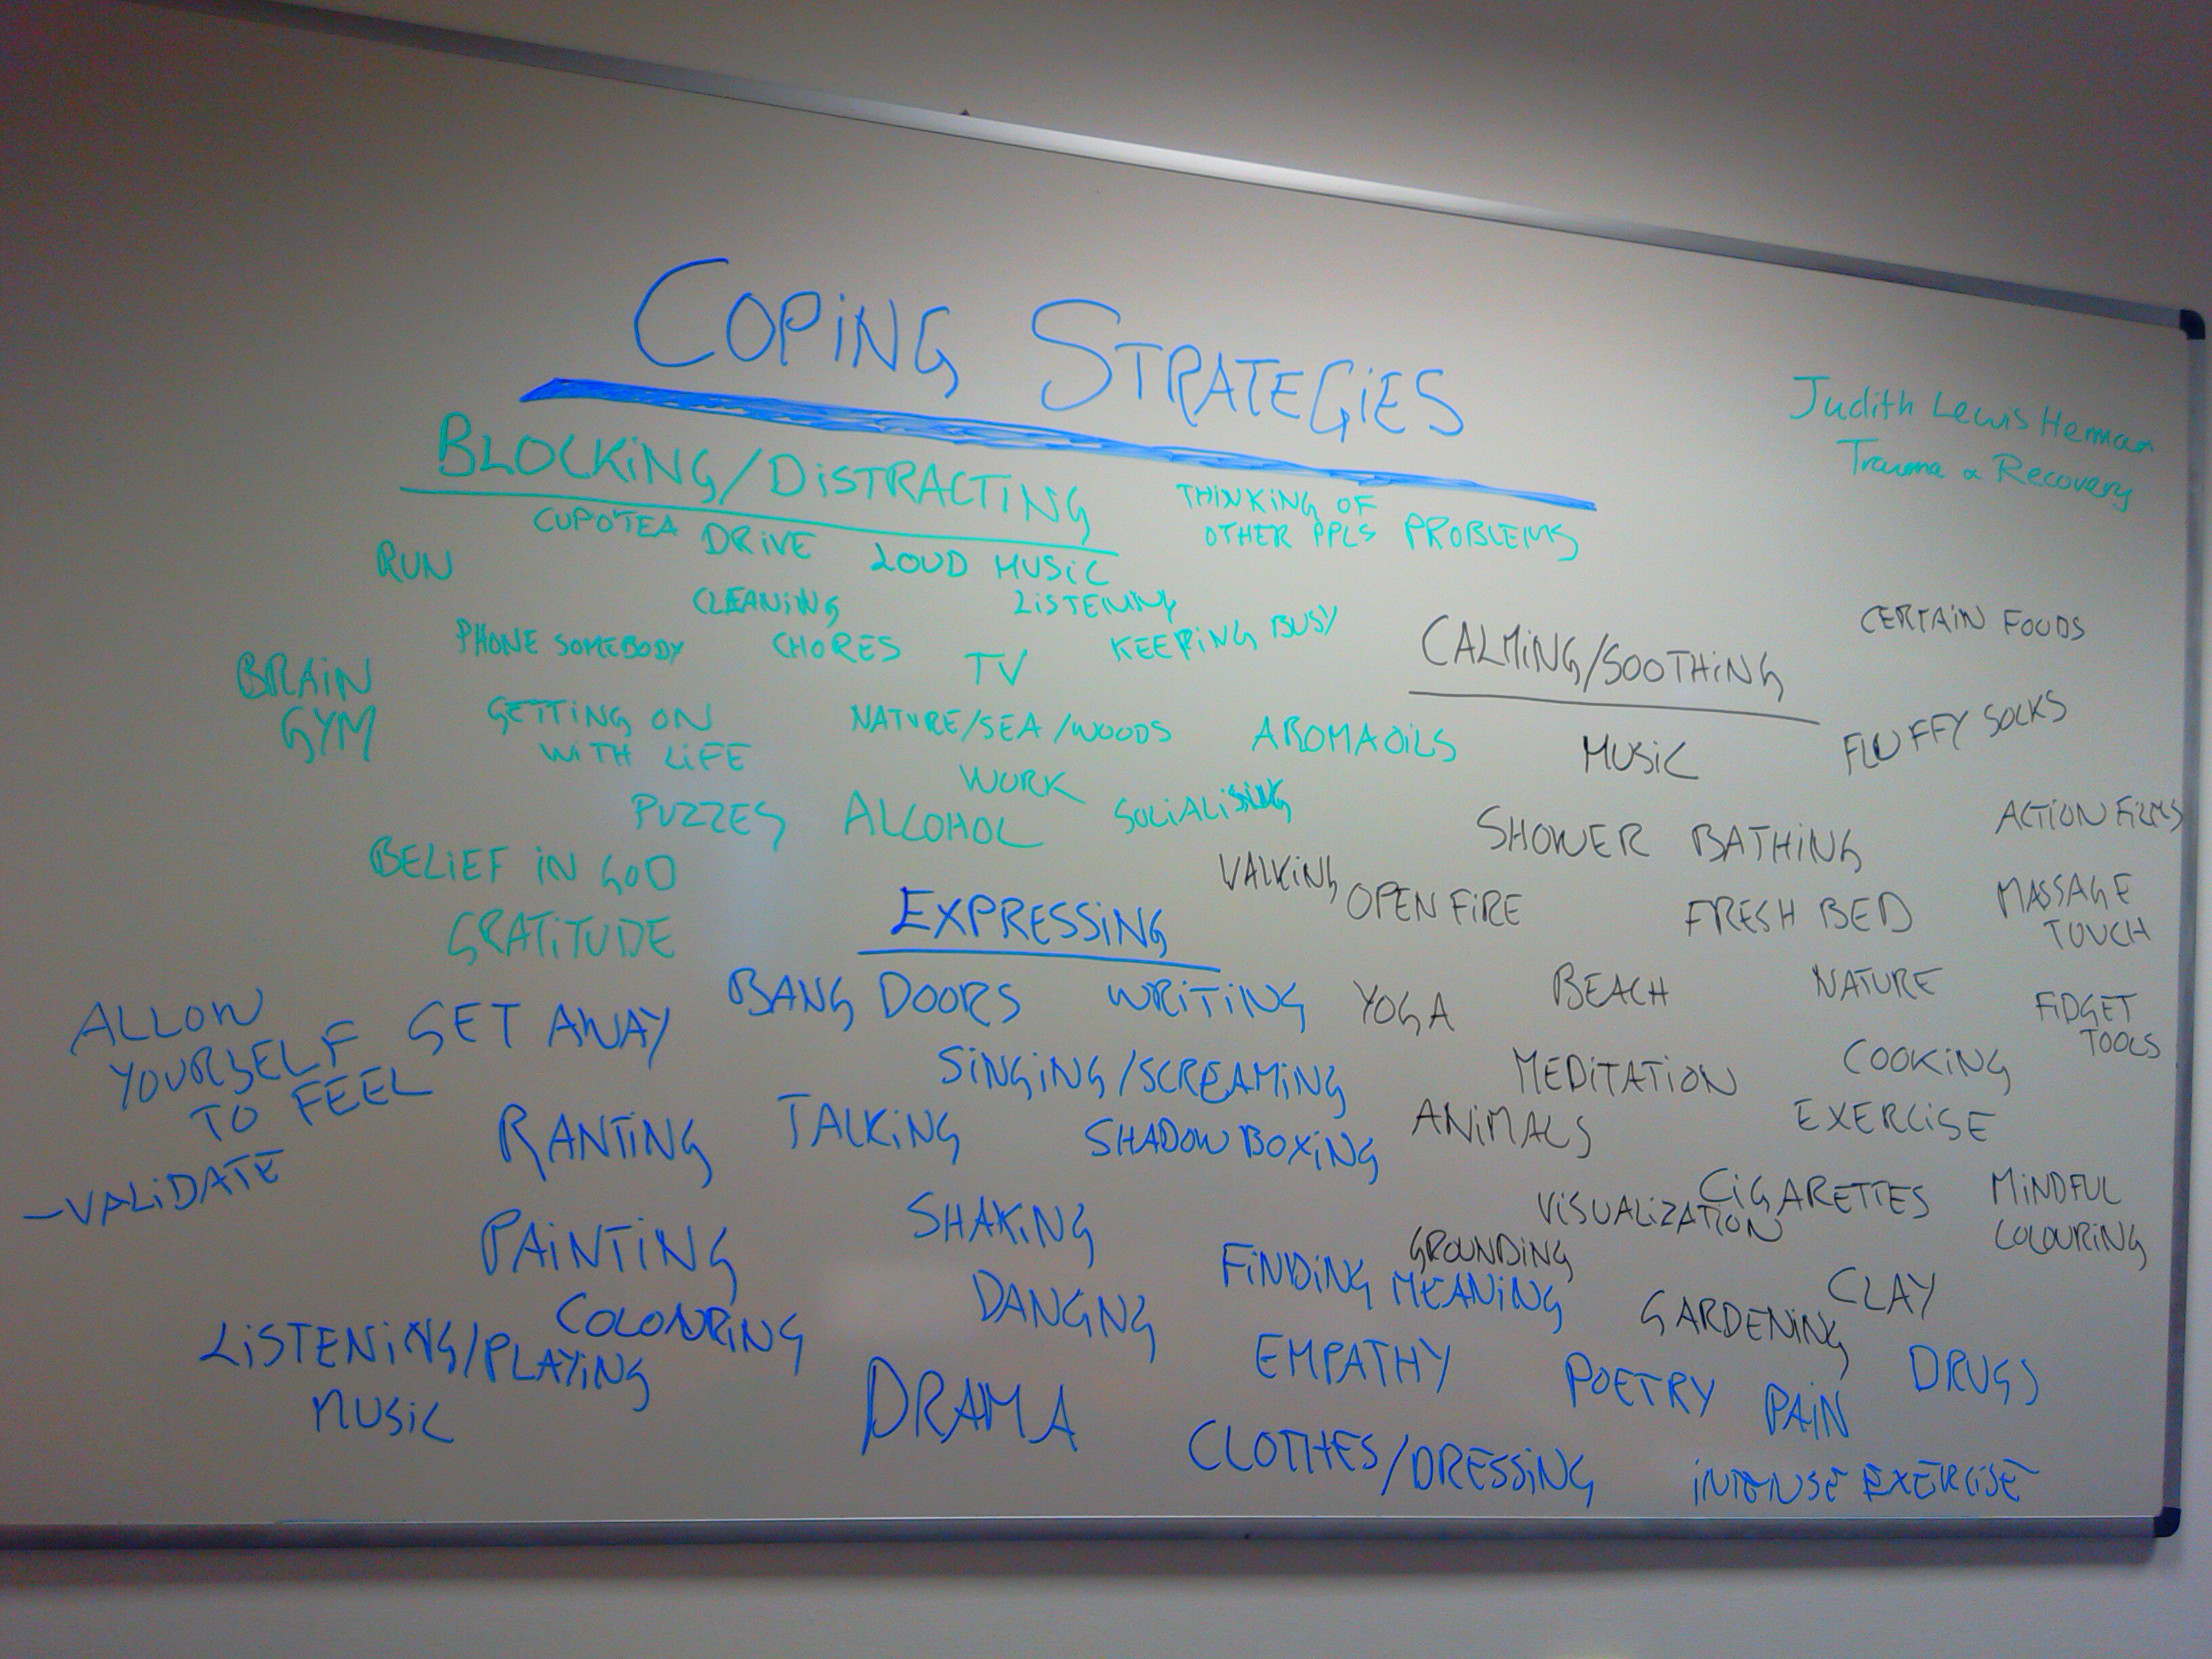 COPING STRATEGIES
Judith Lewis Herman
Trauma & Recovery
BLOCKING/DISTRACTING
THINKING OF
OTHER PPLS PROBLEMS
CUPOTEA DRIVE LOUD MUSIC
RUN
CLEANING
LISTENING
PHONE SOMEBODY
CHORES
TV
KEEPING BUSY
BRAIN
GYM
GETTING ON
WITH LIFE
NATURE/SEA/WOODS
AROMAOILS
WORK
PUZZES
ALCOHOL
SOCIALISING
BELIEF IN GOD
GRATITUDE
CALMING/SOOTHING
CERTAIN FOODS
MUSIC
FLUFFY SOCKS
SHOWER BATHING
ACTION FILMS
WALKING
OPEN FIRE
FRESH BED
MASSAGE
TOUCH
YOGA
BEACH
NATURE
FIDGET
TOOLS
MEDITATION
COOKING
ANIMALS
EXERCISE
CIGARETTES
VISUALIZATION
MINDFUL
COLOURING
GROUNDING
CLAY
GARDENING
EXPRESSING
BANG DOORS
WRITING
ALLOW
YOURSELF
TO FEEL
-VALIDATE
GET AWAY
SINGING/SCREAMING
RANTING
TALKING
SHADOW BOXING
PAINTING
SHAKING
FINDING MEANING
COLOURING
DANCING
LISTENING/PLAYING
MUSIC
DRAMA
EMPATHY
POETRY
PAIN
DRUGS
CLOTHES/DRESSING
INTENSE EXERCISE